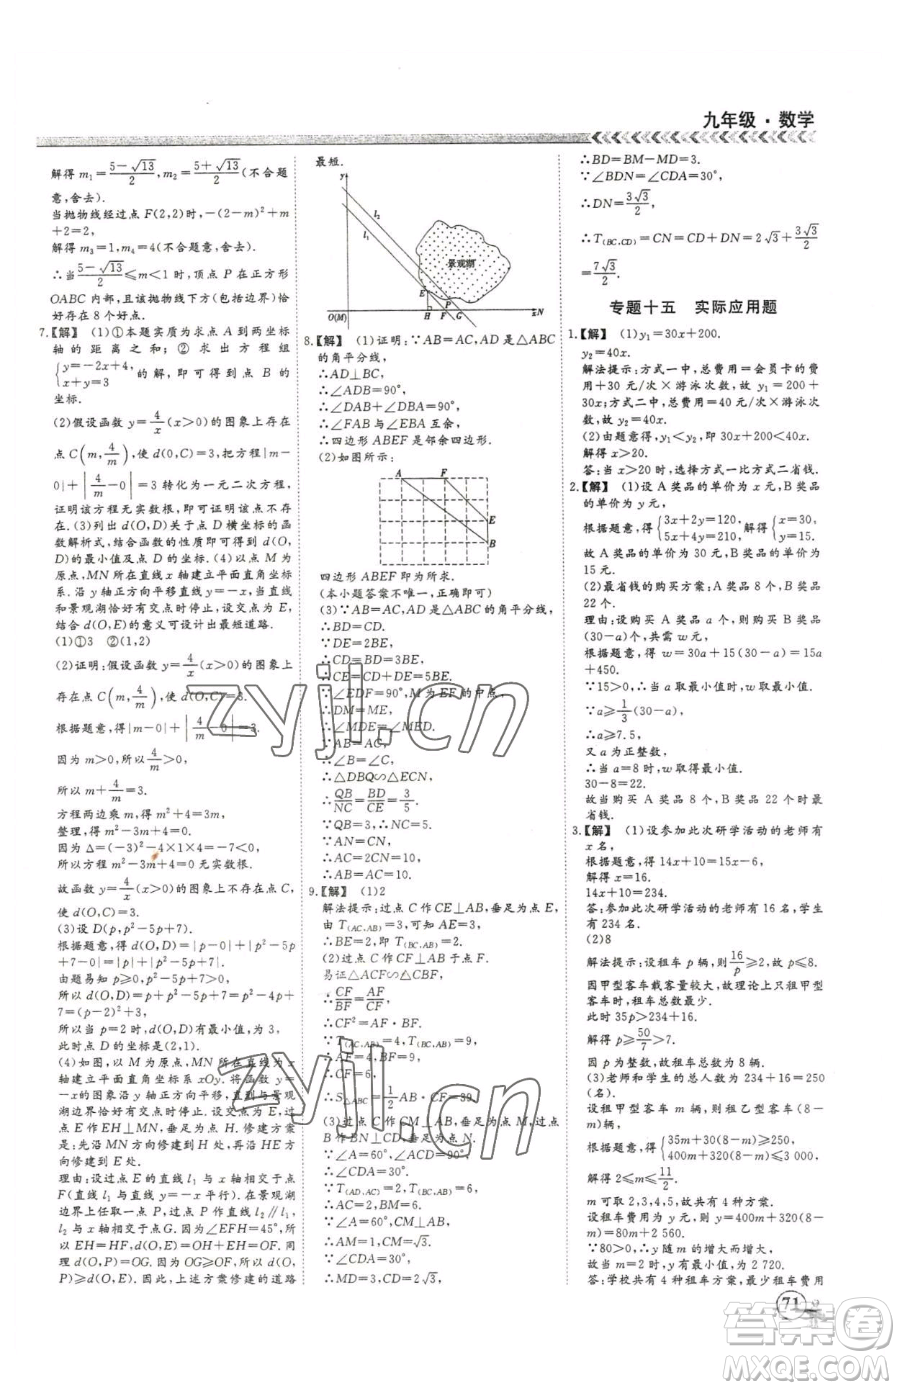 九年级·数学
解得 m₁=(5-√13)/2, m₂=(5+√13)/2(不合题
意,舍去).
当抛物线经过点 F(2,2)时,-(2-m)²+m
+2=2,
解得 m₃=1,m₄=4(不合题意,舍去).
∴当(5-√13)/2≤m<1 时,顶点 P 在正方形
OABC 内部,且抛物线下方(包括边界)恰
好存在 8 个好点.
7.【解】 (1)①本题实质为求点 A 到两坐标
轴的距离之和;②求出方程组
{y=-2x+4, x+y=3 的解,即可得到点 B 的
坐标.
(2)假设函数 y=4/x(x>0)的图象上存在
点 C(m,4/m),由 d(O,C)=3,得到|m-
0|+|4/m-0|=3 转化为一元二次方程,
证明该方程无实数根,即可得该点不存
在.(3)列出 d(O,D)关于点 D 横坐标的函
数解析式,由该函数的性质即可得出 d(O,
D)的最小值及点 D 的坐标.(4)以点 M 为
原点,MN所在直线x轴建立平面直角坐标
系.沿y轴正方向平移直线y=-x,当其与
景观湖边界有交点时停止,设交点为 E,
结合 d(O,E)的意义可设计出最短道路.
(1)①3 ②(1,2)
(2)证明:假设函数 y=4/x(x>0)的图象上
存在点 C(m,4/m),使 d(O,C)=3.
根据题意,得|m-0|+|4/m-0|=3.
因为 m>0,所以|m-0|+|4/m-0|=
所以 m+4/m=3.
方程两边乘 m,得 m²+4=3m.
整理,得 m²-3m+4=0.
因为 Δ=(-3)²-4×1×4=-7<0,
所以方程 m²-3m+4=0 无实数根.
故函数 y=4/x(x>0)的图象上不存在点 C,
使 d(O,C)=3.
(3)设 D(p,p²-5p+7).
根据题意,得 d(O,D)=|p-0|+|p²-5p
+7-0|=|p|+|p²-5p+7|.
由题易知 p≥0,p²-5p+7>0,
所以 d(O,D)=p+p²-5p+7=p²-4p
+7=(p-2)²+3.
所以当 p=2 时,d(O,D)有最小值 3.
此时点 D 的坐标为(2,1).
(4)如图,以 M 为原点,MN 所在直线为 x
轴建立平面直角坐标系 xOy.将直线 y=-x
沿y轴正方向平移,直到与景观
湖边界有交点时停止,设交点为 E,过点 E
作EH⊥MN,垂足为点 H.修建方案
是:先沿 MN 方向修建到 H 处,再沿HE方向
修建到 E 处.
理由:设过点 E 的直线 l₁ 与 x 轴相交于点
F(直线 l₁ 与直线 y=-x 平行).在景观湖
边界所在曲线上任取一点 P,过点 P 作直线 l₂∥l₁,
l₂ 与 x 轴相交于点 G.因为∠EFH=45°,所
以 EH=HF,d(O,E)=OH+EH=OF.同
理,d(O,P)=OG.因为 OG≥OF,所以 d(O,
P)≥d(O,E).因此,上述方案修建的道路
最短.
y
l₂
l₁
景观湖
E
P
O(M) H F G N x
8.【解】 (1)证明:∵AB=AC,AD是△ABC
的角平分线,
∴AD⊥BC,
∴∠ADB=90°,
∴∠DAB+∠DBA=90°,
∴∠FAB 与∠EBA 互余,
∴四边形 ABEF 是邻余四边形.
(2)如图所示:
A F
E
B
四边形 ABEF 即为所求.
(本小题答案不唯一,正确即可)
(3)∵AB=AC,AD 是△ABC 的角平分线,
∴BD=CD.
∵DE=2BE,
∴CD=BD=3BE,
∴CE=CD+DE=5BE.
∵∠EDF=90°,M 为 EF 的中点,
∴DM=ME,
∴∠MDE=∠MED.
∵AB=AC,
∴∠B=∠C,
∴△DBQ∽△ECN,
∴QB/NC=BD/CE=3/5.
∵QB=3,∴NC=5.
∵AN=CN,
∴AC=2CN=10,
∴AB=AC=10.
9.【解】 (1)2
解法提示:过点 C 作 CE⊥AB,垂足为点 E,
由 T(AC,AB)=3,可知 AE=3.
∴BE=2,∴T(BC,AB)=2.
(2)过点 C 作 CF⊥AB 于点 F.
易证△ACF∽△CBF,
∴CF/BF=AF/CF,
∴CF²=AF·BF.
∵T(AC,AB)=4,T(BC,AB)=9,
∴AF=4,BF=9,
∴CF=6,
∴S△ABC=1/2 AB·CF=39.
(3)过点 C 作 CM⊥AB 于点 M,过点 B
作 BN⊥CD,垂足为点 N.
∵∠A=60°,∠ACD=90°,
∴∠CDA=30°.
∵T(AD,AC)=2,T(BC,AB)=6,
∴AC=2,BM=6.
∵∠A=60°,CM⊥AB,
∴AM=1,CM=√3.
∵∠CDA=30°,
∴MD=3,CD=2√3,
∴BD=BM-MD=3.
∵∠BDN=∠CDA=30°,
∴DN=3√3/2,
∴T(BC,CD)=CN=CD+DN=2√3+3√3/2
=7√3/2.
专题十五 实际应用题
1.【解】 (1)y₁=30x+200.
y₂=40x.
解法提示:方式一中,总费用=会员卡的费
用+30 元/次×游泳次数,故 y₁=200+
30x;方式二中,总费用=40 元/次×游泳次
数,故 y₂=40x.
(2)由题意,得 y₁<y₂,即 30x+200<40x,
解得 x>20.
答:当 x>20 时,选择方式一比方式二省钱.
2.【解】 (1)设 A 奖品的单价为 x 元,B 奖品
的单价为 y 元.
根据题意,得{3x+2y=120, 5x+4y=210, 解得{x=30, y=15.
故 A 奖品的单价为 30 元,B 奖品的单价为
15 元.
(2)最省钱的购买方案:A 奖品 8 个,B 奖品
22 个.
理由:设购买 A 奖品 a 个,则购买 B 奖品
(30-a)个,共需 w 元.
根据题意,得 w=30a+15(30-a)=15a
+450.
∵15>0,∴当 a 取最小值时,w 有最小值.
∵a≥1/3(30-a),
∴a≥7.5,
又 a 为正整数,
∴当 a=8 时,w 有最小值.
30-8=22.
故当购买 A 奖品 8 个,B 奖品 22 个时最
省钱.
3.【解】 (1)设参加此次研学活动的老师有
x 名,
根据题意,得 14x+10=15x-6,
解得 x=16.
14x+10=234.
答:参加此次研学活动的老师有 16 名,学
生有 234 名.
(2)8
解法提示:设租车 p 辆,则16/p≥2,故 p≤8.
因甲型客车载客量较大,故理论上只租甲型
客车时,租车总数最小,
此时 35p≥234+16,
解得 p≥50/7>7.
因 p 为整数,故租车总数为 8 辆.
(3)老师和学生的总人数为 234+16=250
(名).
设租甲型客车 m 辆,则租乙型客车(8-
m)辆.
根据题意,得{35m+30(8-m)≥250, 400m+320(8-m)≤3 000,
解得 2≤m≤11/2.
m 可取 2,3,4,5,故共有 4 种方案.
设租车费用为 y 元,
则 y=400m+320(8-m)=80m+2 560.
∵80>0,∴y 随 m 的增大而增大,
故当 m=2 时,y 值最小,为 2 720.
答:学校共有 4 种租车方案,最少租车费用
71
zyjl.cn
zyjl.cn
答案圈
MXQE.COM